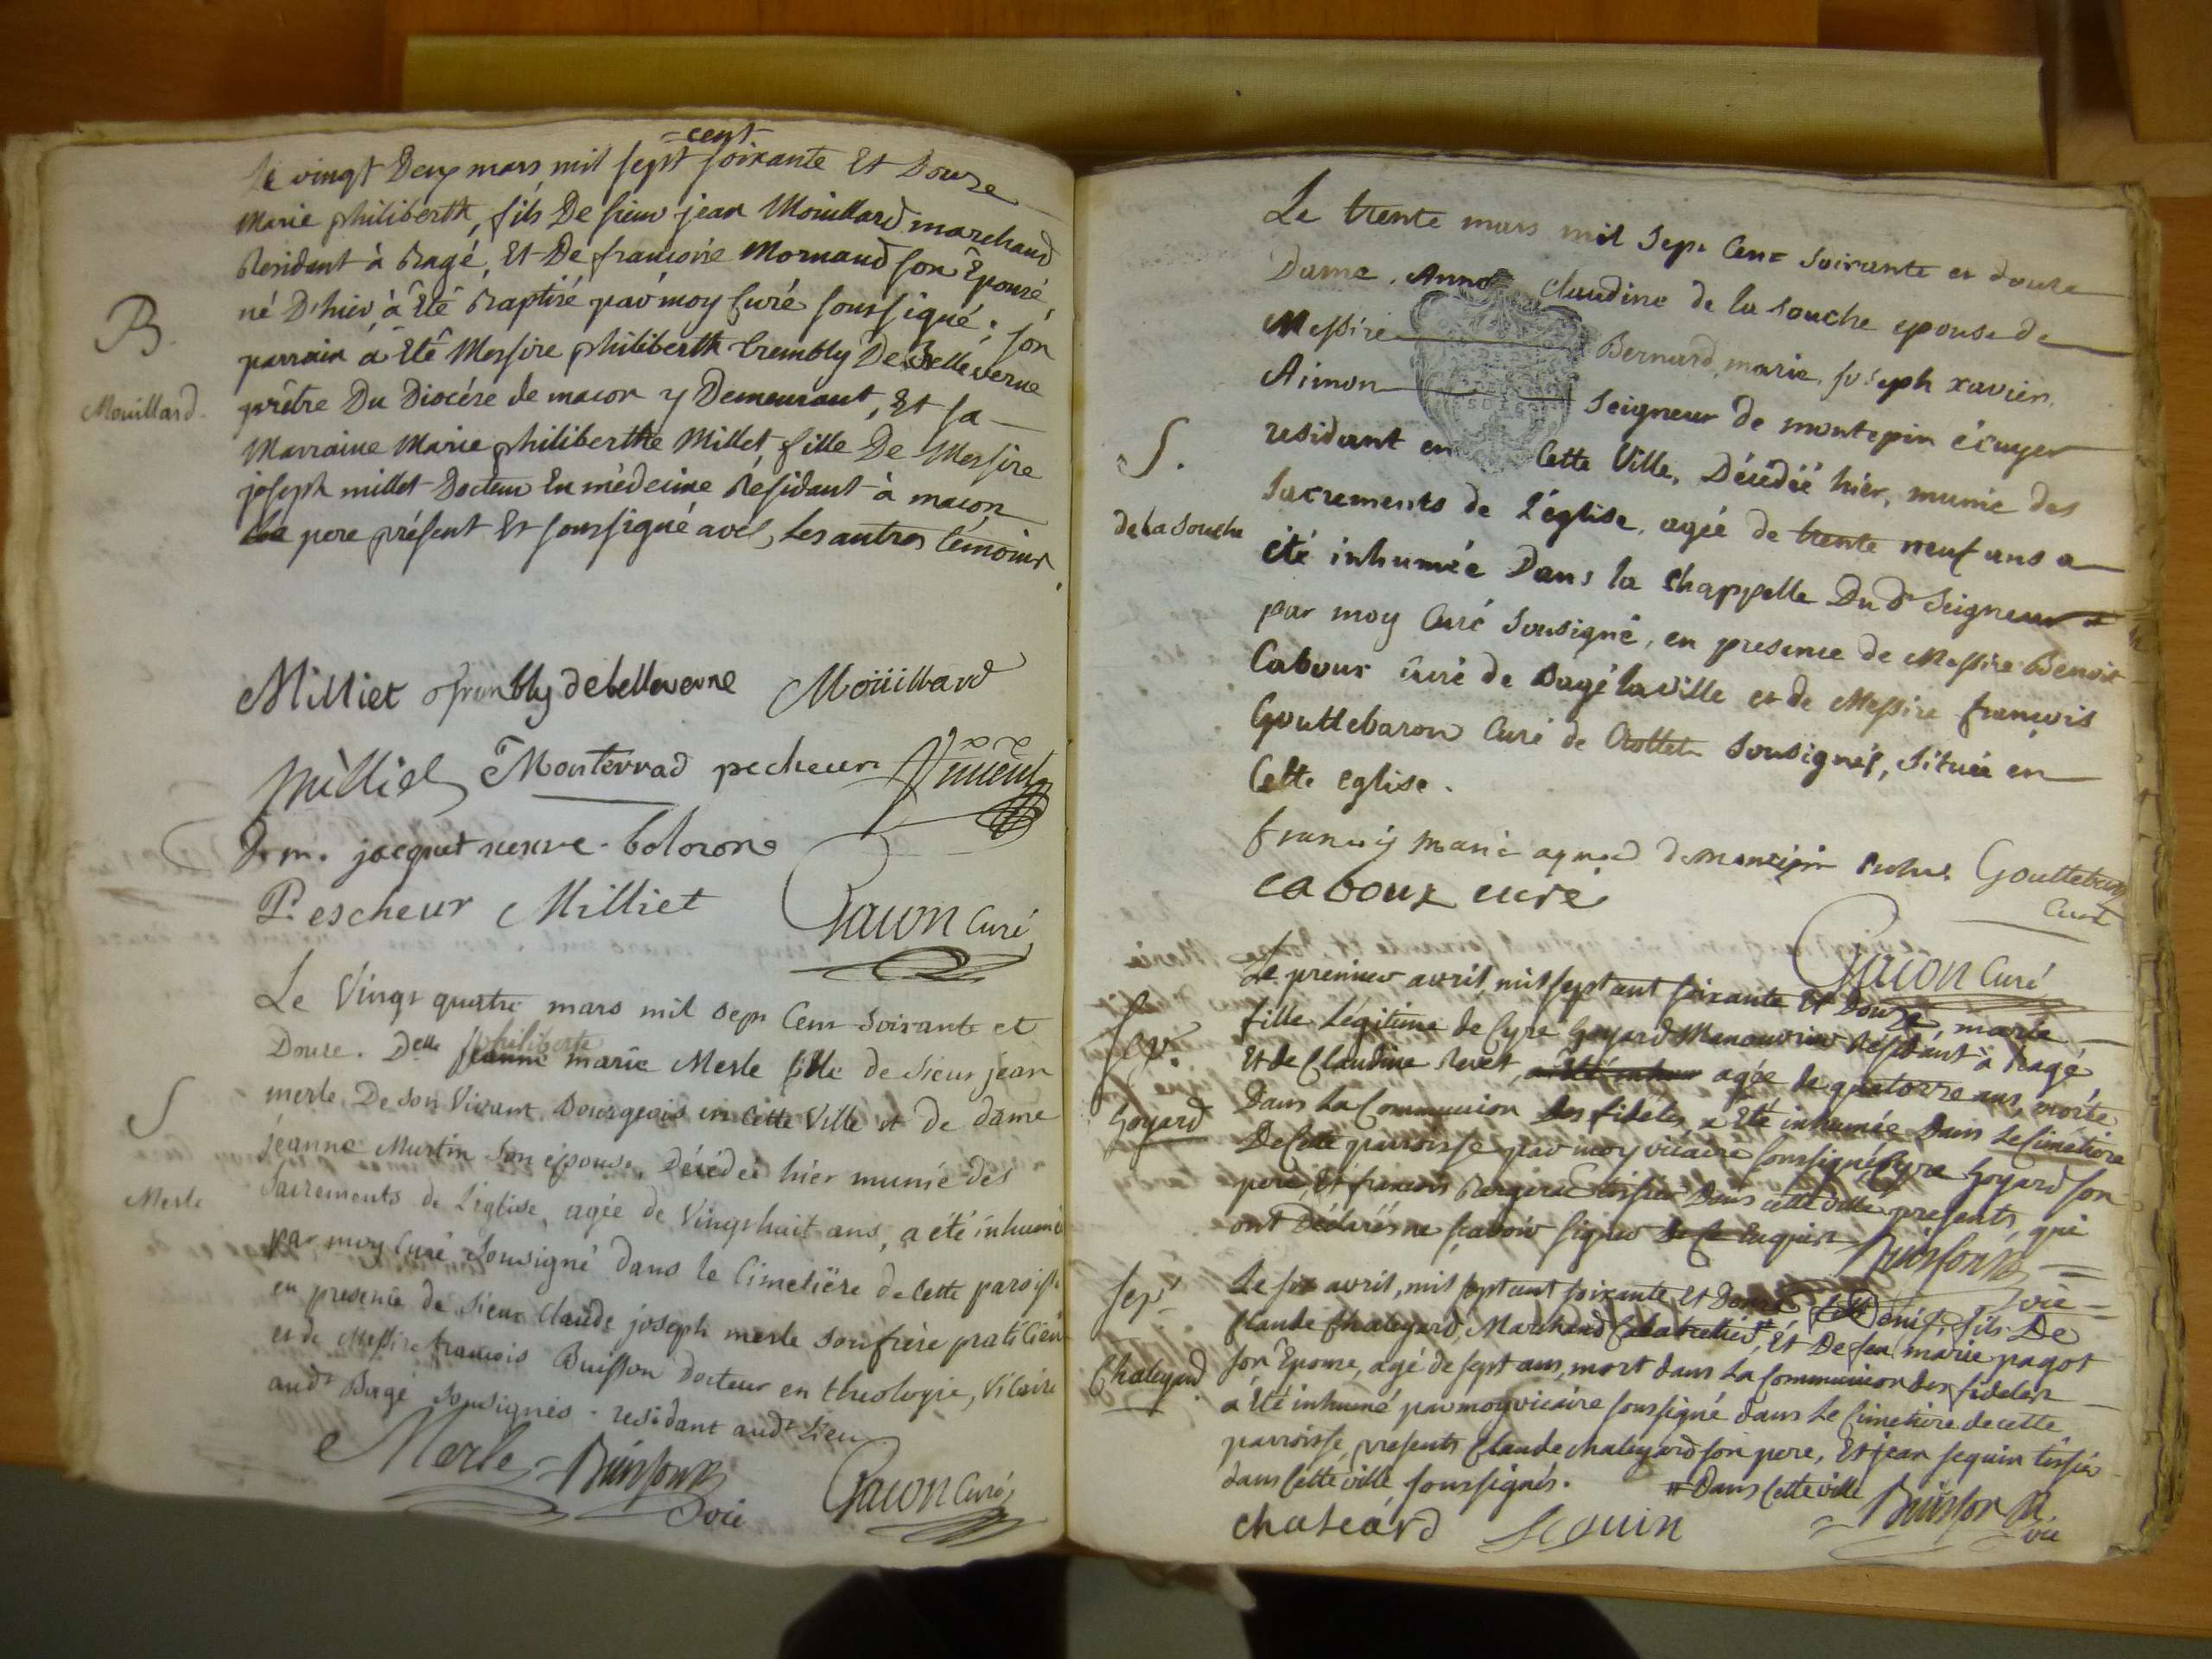 B.
Mouillard.
Le vingt Deux mars mil sept =cent= soixante Et Douze
Marie philiberth, fils De sieur jean Mouillard marchand
Résidant à Bagé, Et De francoise Mornaud son Epouse,
né D'hier à Eté Baptisé par moy Curé soussigné; son
parrain à Eté Messire philiberth Trembly De Belleverne
prêtre Du Diocése de macon y Demeurant, Et sa
Marraine Marie philiberthe Millet, fille De Messire
joseph millet Docteur En médecine Résidant à macon
Le pere présent Et soussigné avec Les autres témoins.
Milliet trembly de belleverne Moüillard
Milliet Monterrad pecheur
jacquet veuve
Pescheur Milliet
Pacon Curé
S
Merle
Le Vingt quatre mars mil sept Cent soixante et
Douze. Delle philiberte marie Merle fille de sieur jean
merle De son Vivant Bourgeois en Cette Ville et de dame
jeanne Martin son épouse, Décédée hier munie des
Sacrements de L'eglise, agée de Vingt huit ans, a été inhumé
par moy Curé Sousigné dans le Cimetiëre de Cette paroisse
en presence de Sieur Claude joseph merle son frère praticien
et de Messire francois Buisson Docteur en theologie, Vicaire
aud.t Bagé Sousignés. residant aud.t Lieu
Merle = Buisson
vic
Pacon Curé
S.
de La Souche
Le trente mars mil Sept Cent Soixante et douze
Dame, Anne Claudine de la Souche epouse de
Messire Bernard, marie, joseph xavier,
Aimon Seigneur de montepin écuyer
residant en Cette Ville, Décédée hier, munie des
Sacrements de L'église, agée de trente neuf ans a
été inhumée Dans la Chappelle Dud.t Seigneur
par moy Curé Sousigné, en presence de Messire Benoit
Caboux Curé de Bagé la Ville et de Messire francois
Gouttebaron Curé de Crottet Sousignés, Située en
Cette eglise.
francois marie aymond de montepin Gouttebaron
Curé
caboux curé
Pacon Curé
Sep.
Goyard
Le premier avril, mil sept cent soixante Et Douze, marie
fille Légitime de Cyre Goyard Manouvrier Résidant à Bagé
Et de Claudine Revet, agée de quatorze ans, morte
Dans La Communion Des fideles, a Eté inhumée Dans Le Cimétiere
De Cette parroisse par moy vicaire soussigné, Cyre Goyard son
pere, Et francois Bergerac tissier Dans cette ville presents, qui
ont Déclarés ne scavoir signer De Ce Enquis
Buisson
vic =
Sep.t
Chaleyard
Le six avril, mil sept cent soixante Et Douze, Denis, fils De
Claude Chaleyard, Marchand Et De feu marie pagot
son Epouse, agé de sept ans, mort dans La Communion des fideles
à Eté inhumé par moy vicaire soussigné dans Le Cimetiere de cette
parroisse, presents Claude chaleyard son pere, Et jean sequin tissier
dans Cette ville soussignés. # Dans Cette ville
chaleard Sequin = Buisson
vic